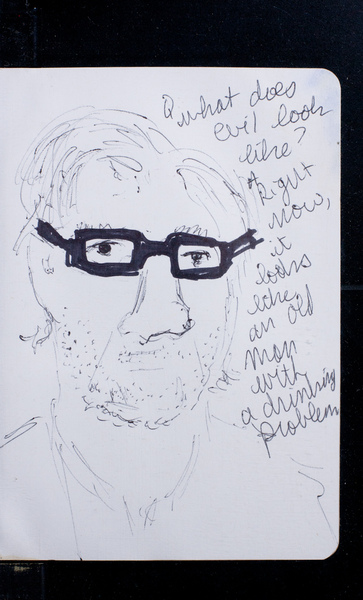 Q what does
evil look
like?
A Right
now,
it
looks
like
an old
man
with
a drinking
problem